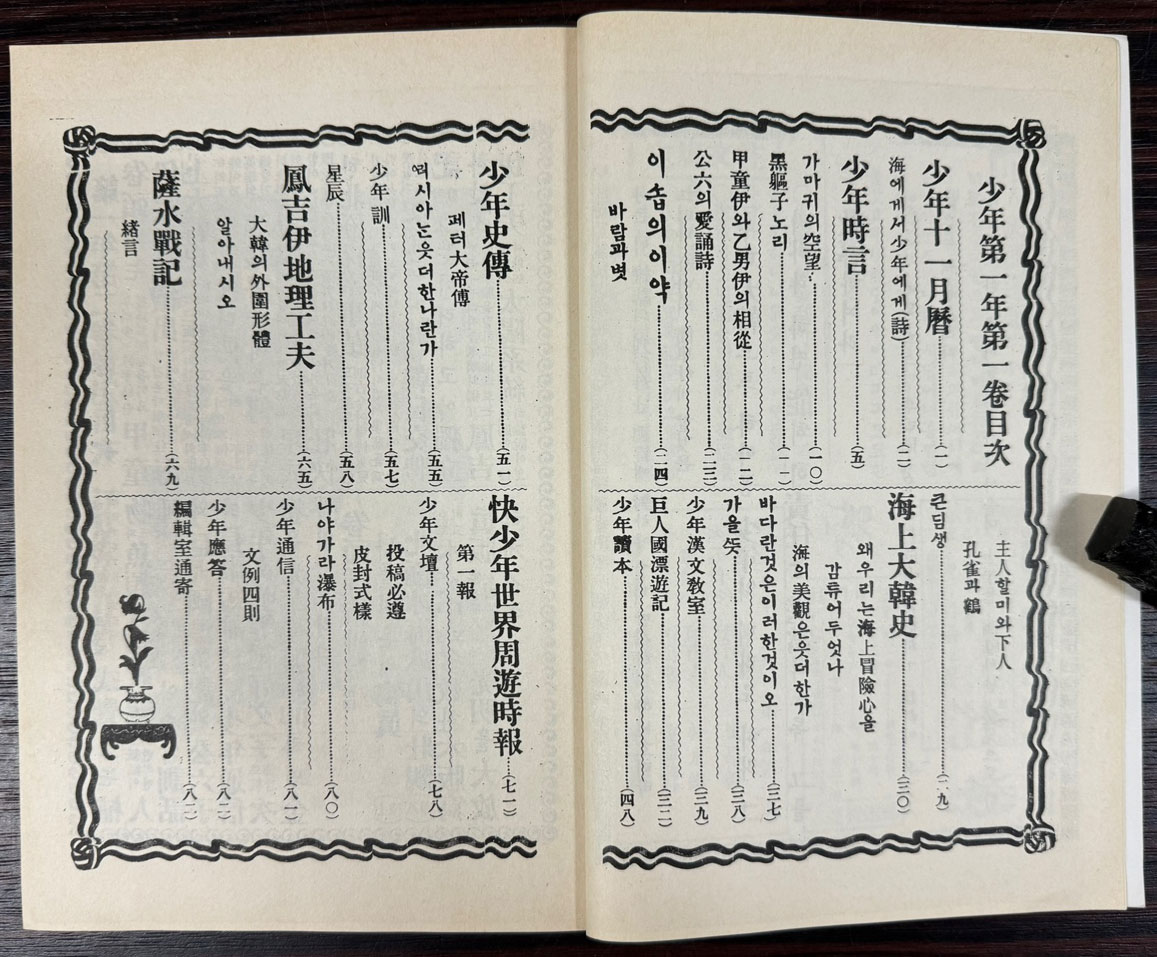 少年第一年第一卷目次
少年十一月曆 (一)
海에게서少年에게(詩) (二)
少年時言 (五)
가마귀의空望 (一〇)
黑軀子노리 (一一)
甲童伊와乙男伊의相從 (一二)
公六의愛誦詩 (二三)
이솝의이약 (二四)
바람과볏
主人할미와下人
孔雀과鶴
큰딤생 (二九)
海上大韓史 (三〇)
왜우리는海上冒險心을
감튜어두엇나
海의美觀은읏더한가
바다란것은이러한것이오 (三七)
가을ᄯᅳᆺ (三八)
少年漢文敎室 (三九)
巨人國漂遊記 (三二)
少年讀本 (四八)
少年史傳 (五一)
페터大帝傳
러시아는읏더한나란가 (五五)
少年訓 (五七)
星辰 (五八)
鳳吉伊地理工夫 (六五)
大韓의外圍形體
알아내시오
薩水戰記 (六九)
緖言
快少年世界周遊時報 (七一)
第一報
少年文壇 (七八)
投稿必遵
皮封式樣
나야가라瀑布 (八〇)
少年通信 (八一)
文例四則
少年應答 (八二)
編輯室通寄 (八二)